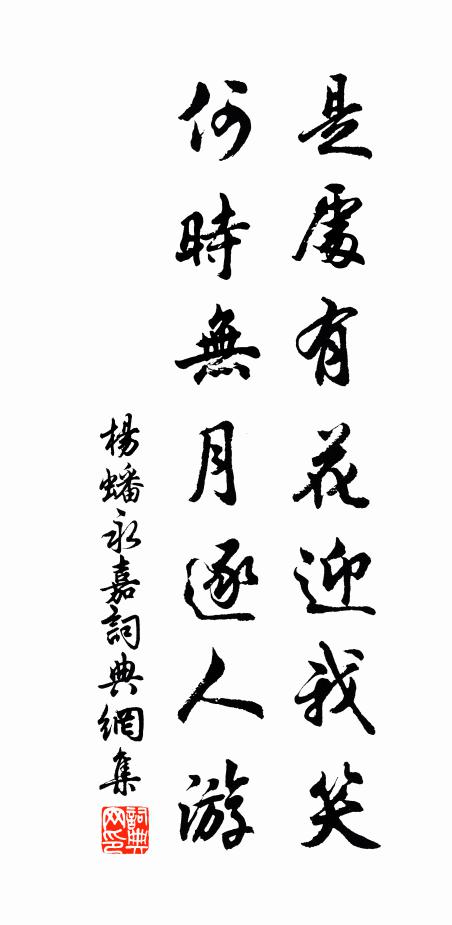 是處有花迎我笑
何時無月逐人游
楊蟠永嘉詞典網集
詞典网印